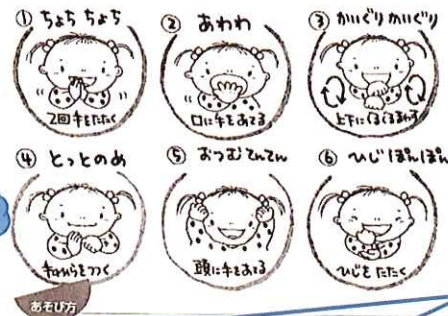 ① ちょち ちょち
2回 手をたたく
② あわわ
口に手をあてる
③ かいぐりかいぐり
上下にくるくるまわす
④ とっとのめ
手のひらをつつく
⑤ おつむてんてん
頭に手をあてる
⑥ ひじぽんぽん
ひじをたたく
あそび方